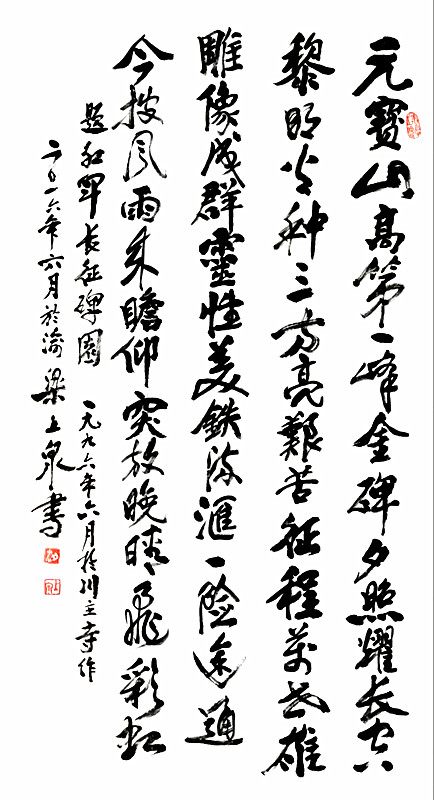 元寶山高第一峰金碑夕照耀長空
黎明火种三方亮艱苦征程萬世雄
雕像成群靈性美鉄流滙一险途通
今披风雨来瞻仰突放晚晴飛彩虹
題红军長征碑園 一九九六年六月於川主寺作
二〇一六年六月於渝梁上泉書